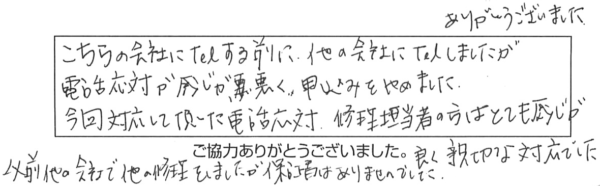 ありがとうございました
こちらの会社にTelする前に、他の会社にTelしましたが
電話応対が感じが悪く、申込みをやめました。
今回対応して頂いた電話応対、修理担当者の方はとても感じが
ご協力ありがとうございました。良く親切な対応でした
以前他の会社で他の修理をしましたが保証書はありませんでした。